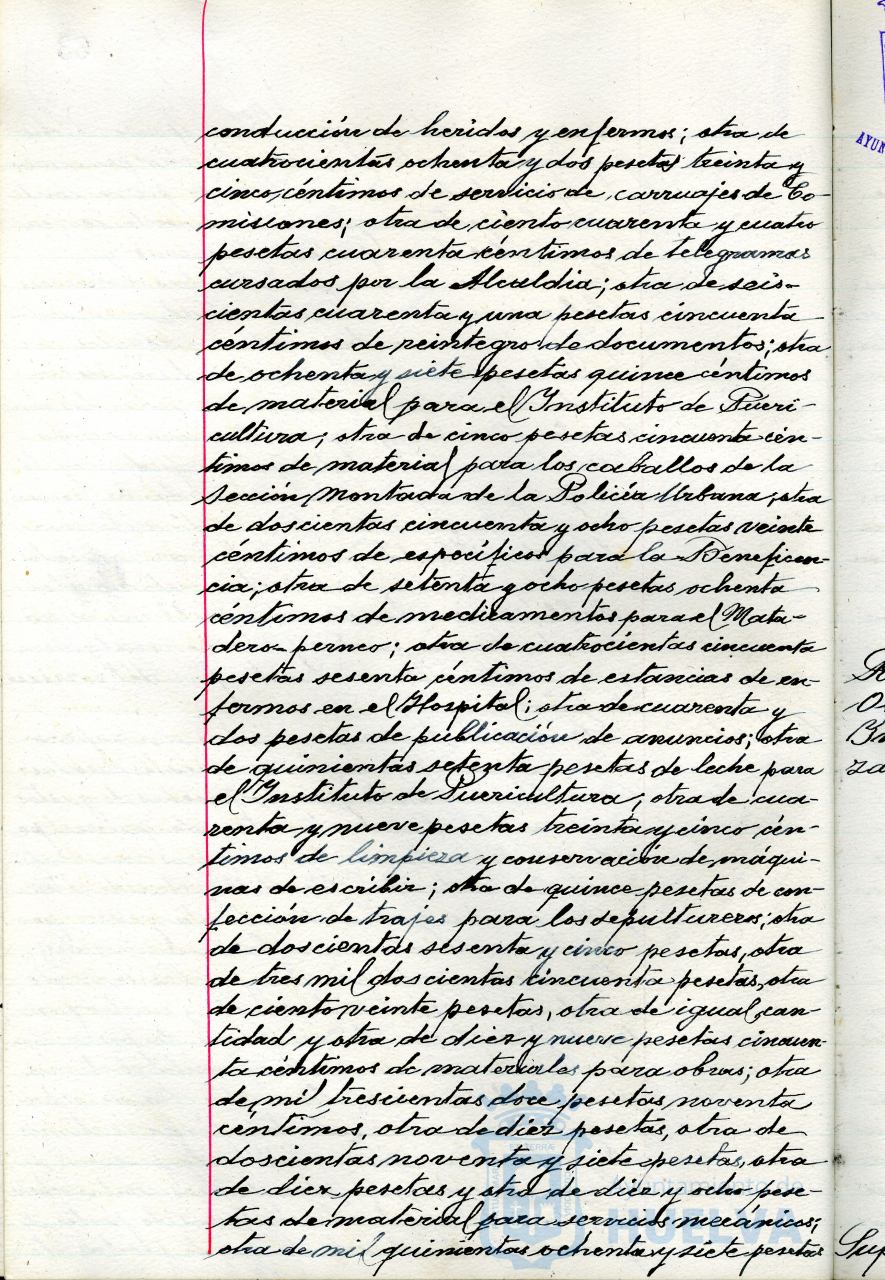 conducción de heridos y enfermos; otra de
cuatrocientas ochenta y dos pesetas treinta y
cinco céntimos de servicio de carruajes de Co-
misiones; otra de ciento cuarenta y cuatro
pesetas cuarenta céntimos de telegramas
cursados por la Alcaldia; otra de seis-
cientas cuarenta y una pesetas cincuenta
céntimos de reintegro de documentos; otra
de ochenta y siete pesetas quince céntimos
de material para el Instituto de Pueri-
cultura; otra de cinco pesetas cincuenta cén-
timos de material para los caballos de la
Sección Montada de la Policía Urbana; otra
de doscientas cincuenta y ocho pesetas veinte
céntimos de específicos para la Beneficen-
cia; otra de setenta y ocho pesetas ochenta
céntimos de medicamentos para el Mata-
dero-perneo; otra de cuatrocientas cincuenta
pesetas sesenta céntimos de estancias de en-
fermos en el Hospital; otra de cuarenta y
dos pesetas de publicación de anuncios; otra
de quinientas setenta pesetas de leche para
el Instituto de Puericultura; otra de cua-
renta y nueve pesetas treinta y cinco cén-
timos de limpieza y conservación de máqui-
nas de escribir; otra de quince pesetas de con-
fección de trajes para los sepultureros; otra
de doscientas sesenta y cinco pesetas, otra
de tres mil doscientas cincuenta pesetas, otra
de ciento veinte pesetas, otra de igual can-
tidad y otra de diez y nueve pesetas cincuen-
ta céntimos de materiales para obras; otra
de mil trescientas doce pesetas noventa
céntimos, otra de diez pesetas, otra de
doscientas noventa y siete pesetas, otra
de diez pesetas y otra de diez y ocho pese-
tas de material para servicios mecánicos;
otra de mil quinientas ochenta y siete pesetas
Ayuntamiento de
HUELVA